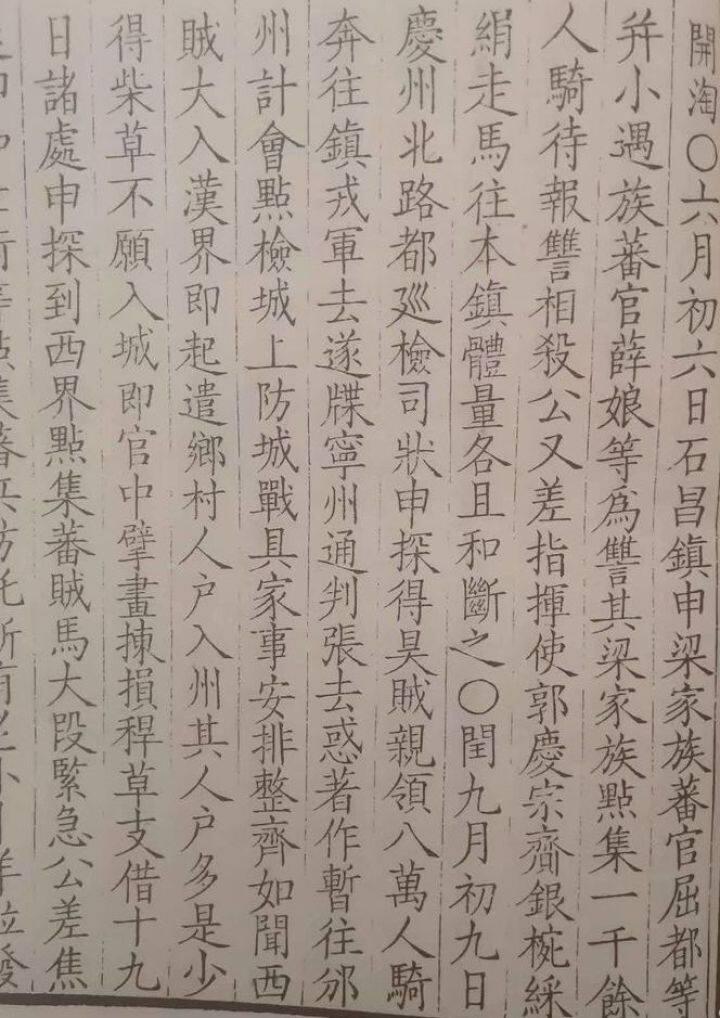 開淘〇六月初六日石昌鎮申梁家族蕃官屈都等
并小遇族蕃官薛娘等爲讐其梁家族點集一千餘
人騎待報讐相殺公又差指揮使郭慶宗齎銀椀綵
絹走馬往本鎮體量各且和斷之〇閏九月初九日
慶州北路都廵檢司狀申探得昊賊親領八萬人騎
奔往鎮戎軍去遂牒寧州通判張去惑著作暫往邠
州計會點檢城上防城戰具家事安排整齊如聞西
賊大入漢界即起遣鄉村人户入州其人户多是少
得柴草不願入城即官中擘畫揀損稈草支借十九
日諸處申探到西界點集蕃賊馬大段緊急公差焦